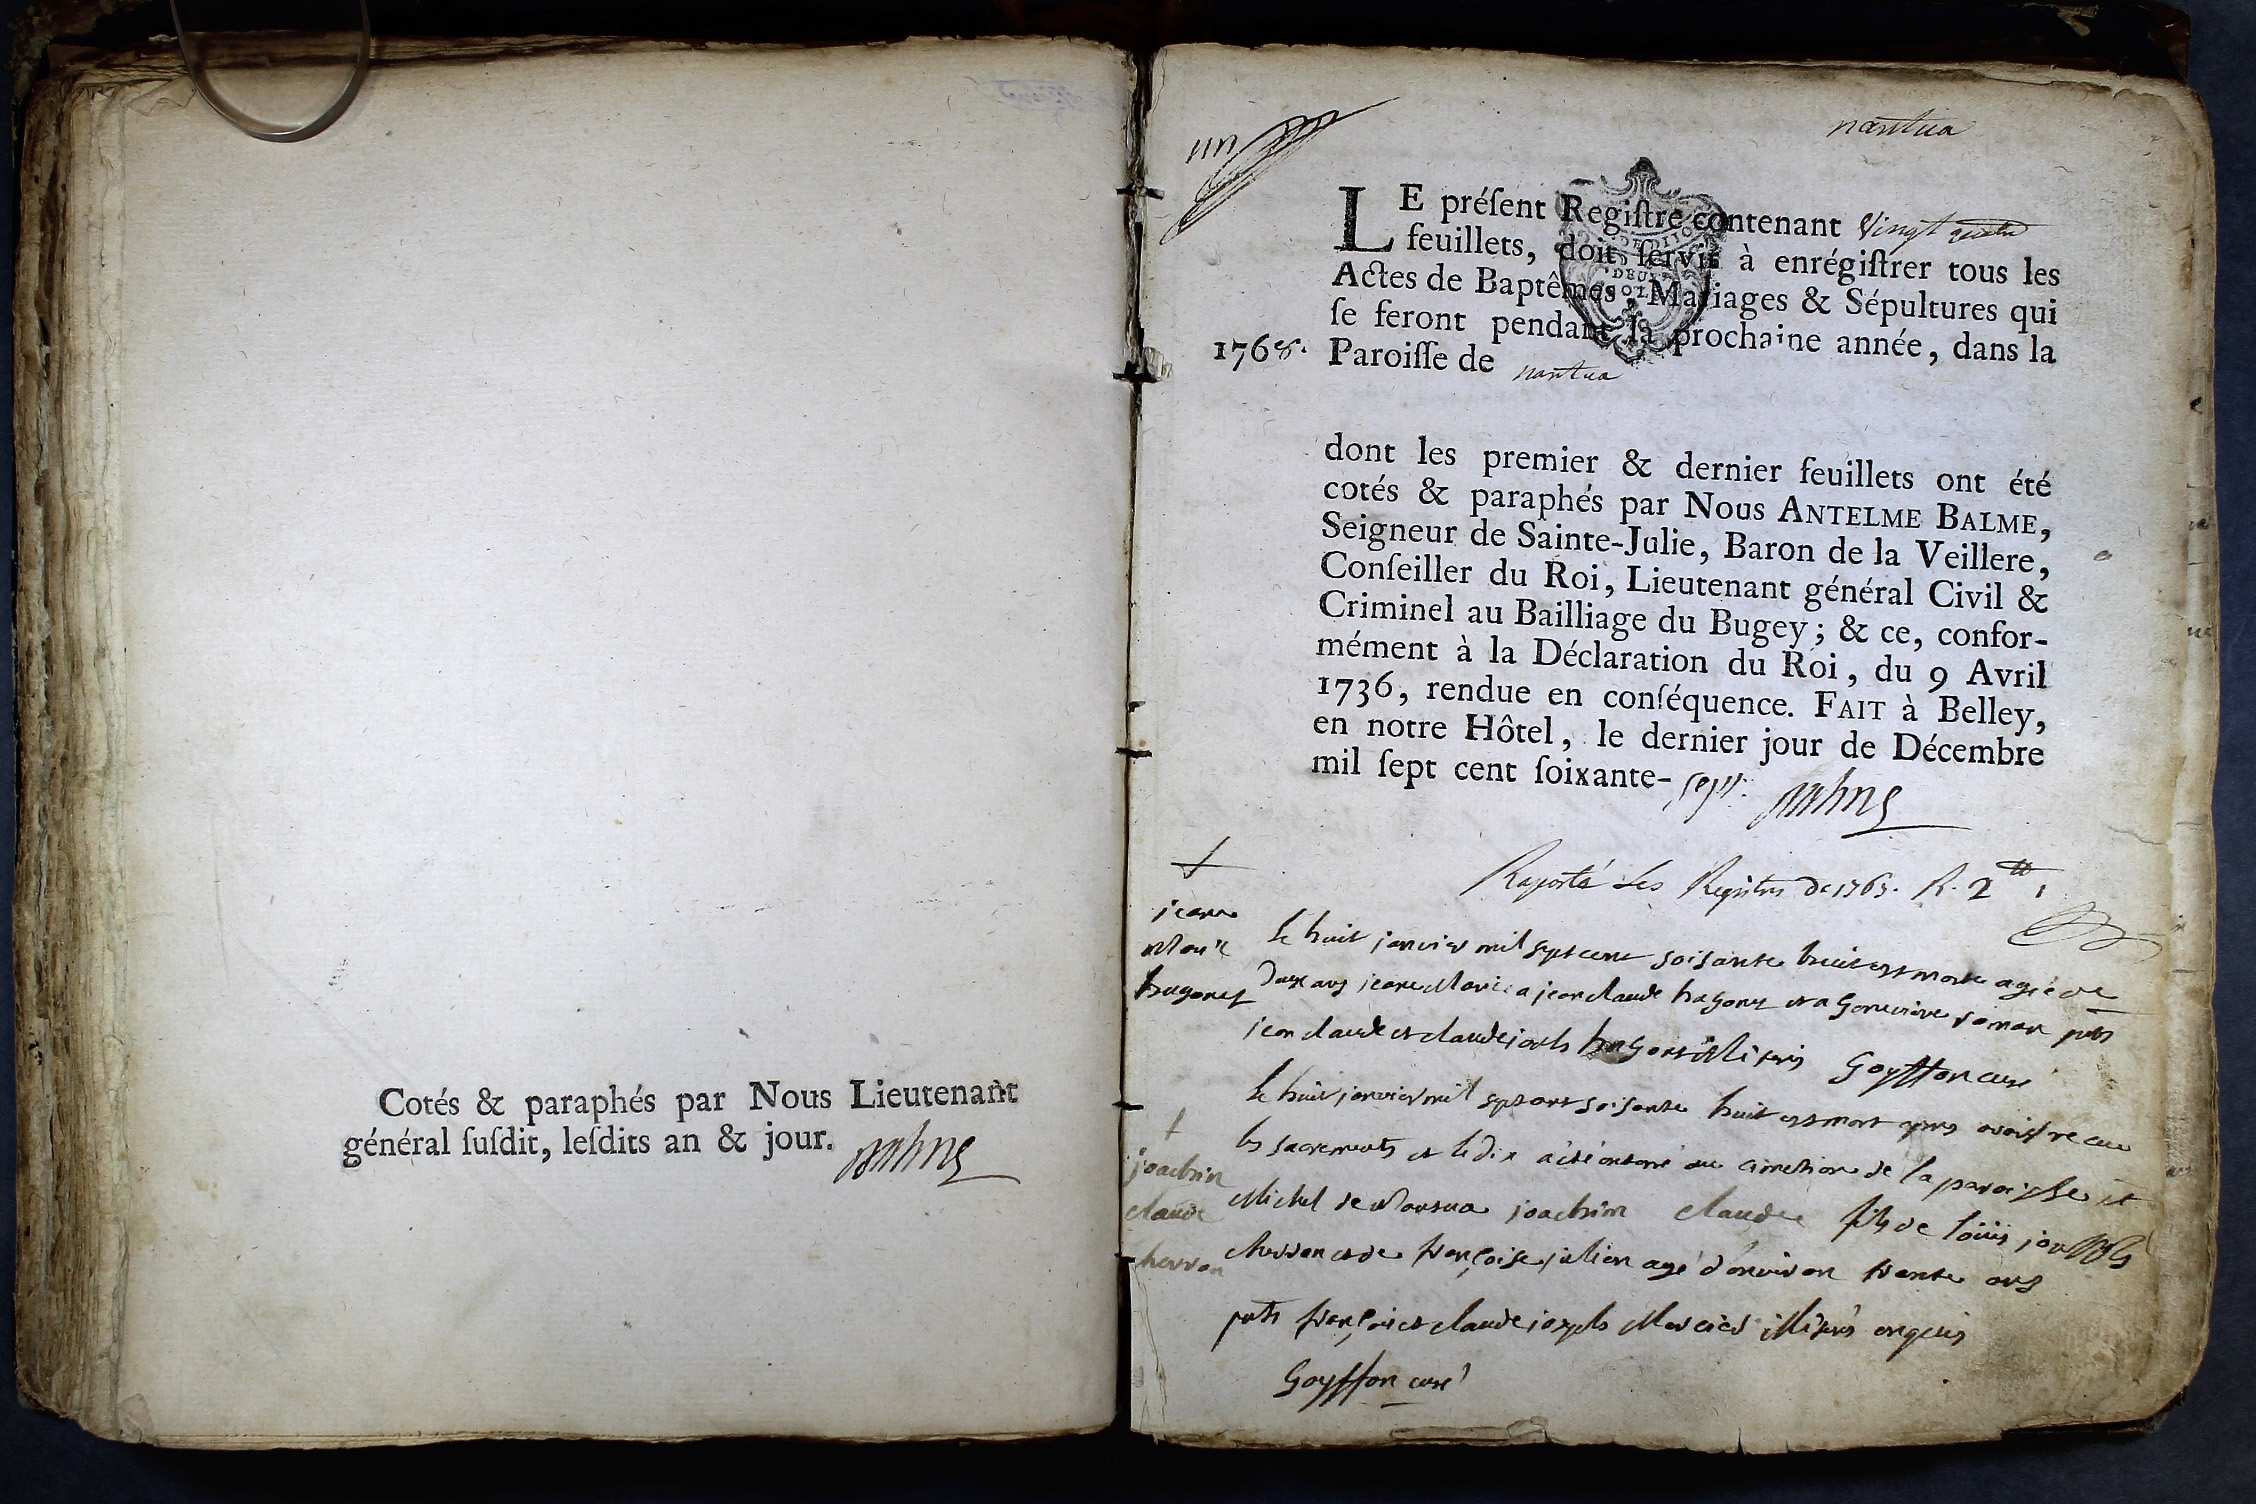 Cotés & paraphés par Nous Lieutenant
général ſuſdit, leſdits an & jour.
un
nantua
LE préſent Regiſtre contenant vingt quatre
feuillets, doit ſervir à enrégiſtrer tous les
Actes de Baptêmes, Mariages & Sépultures qui
ſe feront pendant la prochaine année, dans la
1768. Paroiſſe de nantua
dont les premier & dernier feuillets ont été
cotés & paraphés par Nous ANTELME BALME,
Seigneur de Sainte-Julie, Baron de la Veillere,
Conſeiller du Roi, Lieutenant général Civil &
Criminel au Bailliage du Bugey; & ce, confor-
mément à la Déclaration du Roi, du 9 Avril
1736, rendue en conſéquence. FAIT à Belley,
en notre Hôtel, le dernier jour de Décembre
mil ſept cent ſoixante-sept.
Raporté les Registres de R. 2
jeane
Marie
hugonet
le huit janvier mil sept cent soisante huit est morte agée de
deux ans jeane Marie a jean claude hugonet et a Genevieve pnts
jean claude et claude joseph hugonet
Goyffon curé
le huit janvier mil sept cent soisante huit est mort apres avoir reçu
les sacrements et le dix a été enterré au cimetiere de la paroisse st
joachim
claude
Michel de Nantua joachim claude fils de loüis joseph
et de françoise julien agé d'environ trente ans
pnts françois et claude joseph Mercier illiterés enquis
Goyffon curé